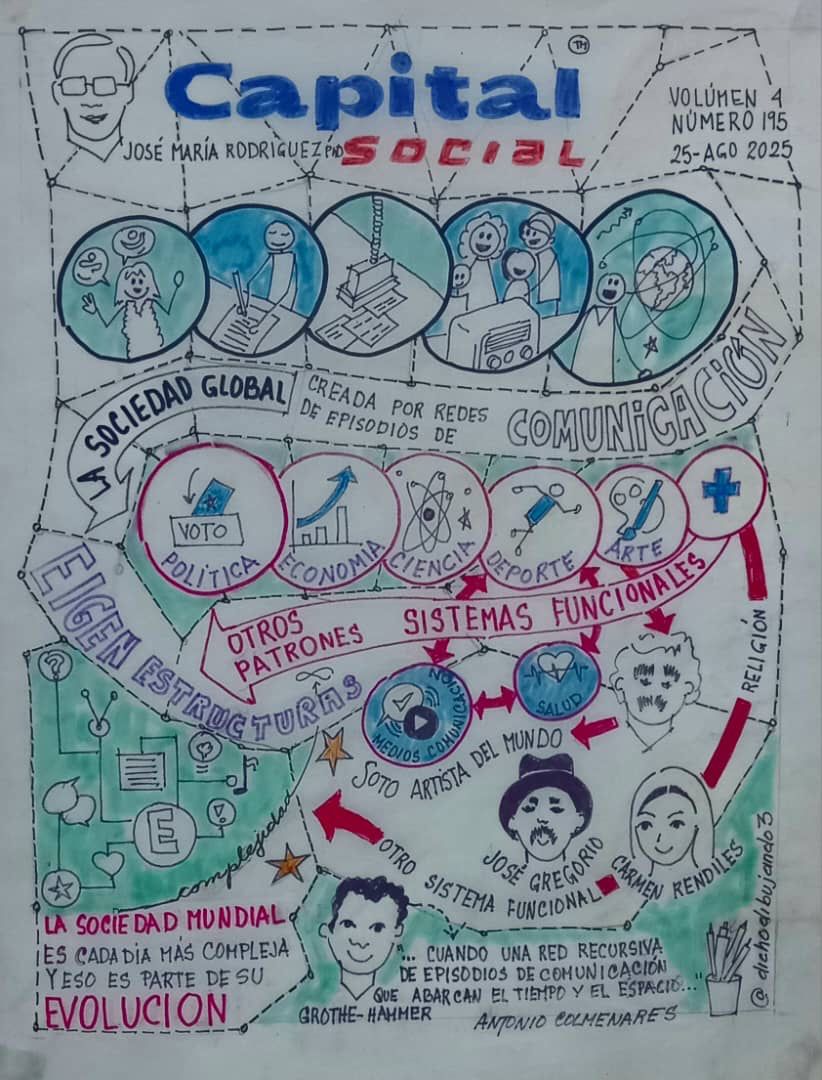 Capital ™
SOCIAL
JOSÉ MARÍA RODRIGUEZ PhD
VOLÚMEN 4
NÚMERO 195
25-AGO 2025
LA SOCIEDAD GLOBAL
CREADA POR REDES
DE EPISODIOS DE
COMUNICACIÓN
VOTO
POLÍTICA
ECONOMIA
CIENCIA
DEPORTE
ARTE
OTROS
PATRONES
SISTEMAS FUNCIONALES
EIGEN ESTRUCTURAS
RELIGIÓN
MEDIOS COMUNICACIÓN
SALUD
SOTO ARTISTA DEL MUNDO
?
E
complejidad
JOSÉ GREGORIO
CARMEN RENDILES
OTRO SISTEMA FUNCIONAL
LA SOCIEDAD MUNDIAL
ES CADA DÍA MÁS COMPLEJA
Y ESO ES PARTE DE SU
EVOLUCION
GROTHE-HAMMER
"... CUANDO UNA RED RECURSIVA
DE EPISODIOS DE COMUNICACIÓN
QUE ABARCAN EL TIEMPO Y EL ESPACIO..."
ANTONIO COLMENARES
@dichodibujando3